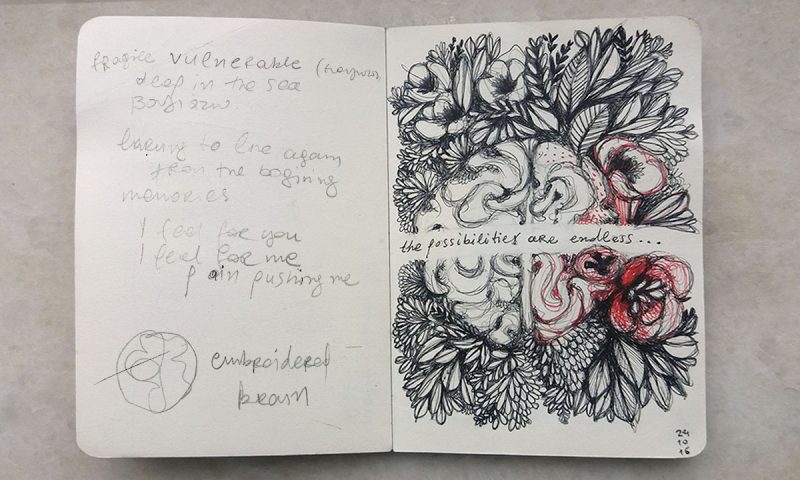 fragile vulnerable
deep in the sea
larning to live again
from the begining
memories
I feel for you
I feel for me
pain pushing me
embroidered
brain
the possibilities are endless...
24
10
16